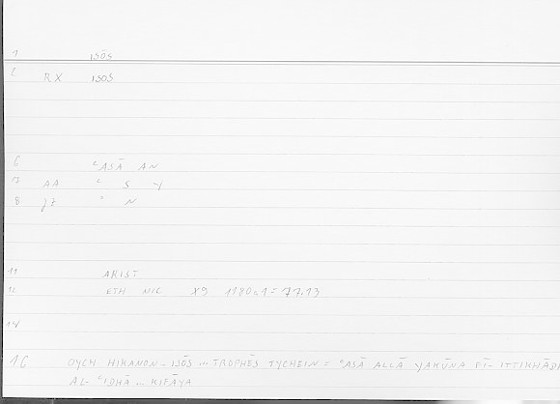 1 ISŌS
2 RX ISOS
6 ʿASĀ AN
7 AA ʿ S Y
8 ʾ N
11 ARIST
12 ETH NIC X9 1180a1 = 77.13
14
16 OYCH HIKANON – ISŌS ... TROPHĒS TYCHEIN = ʿASĀ ALLĀ YAKŪNA FĪ- ITTIKHĀDI
AL- ... KIFĀYA